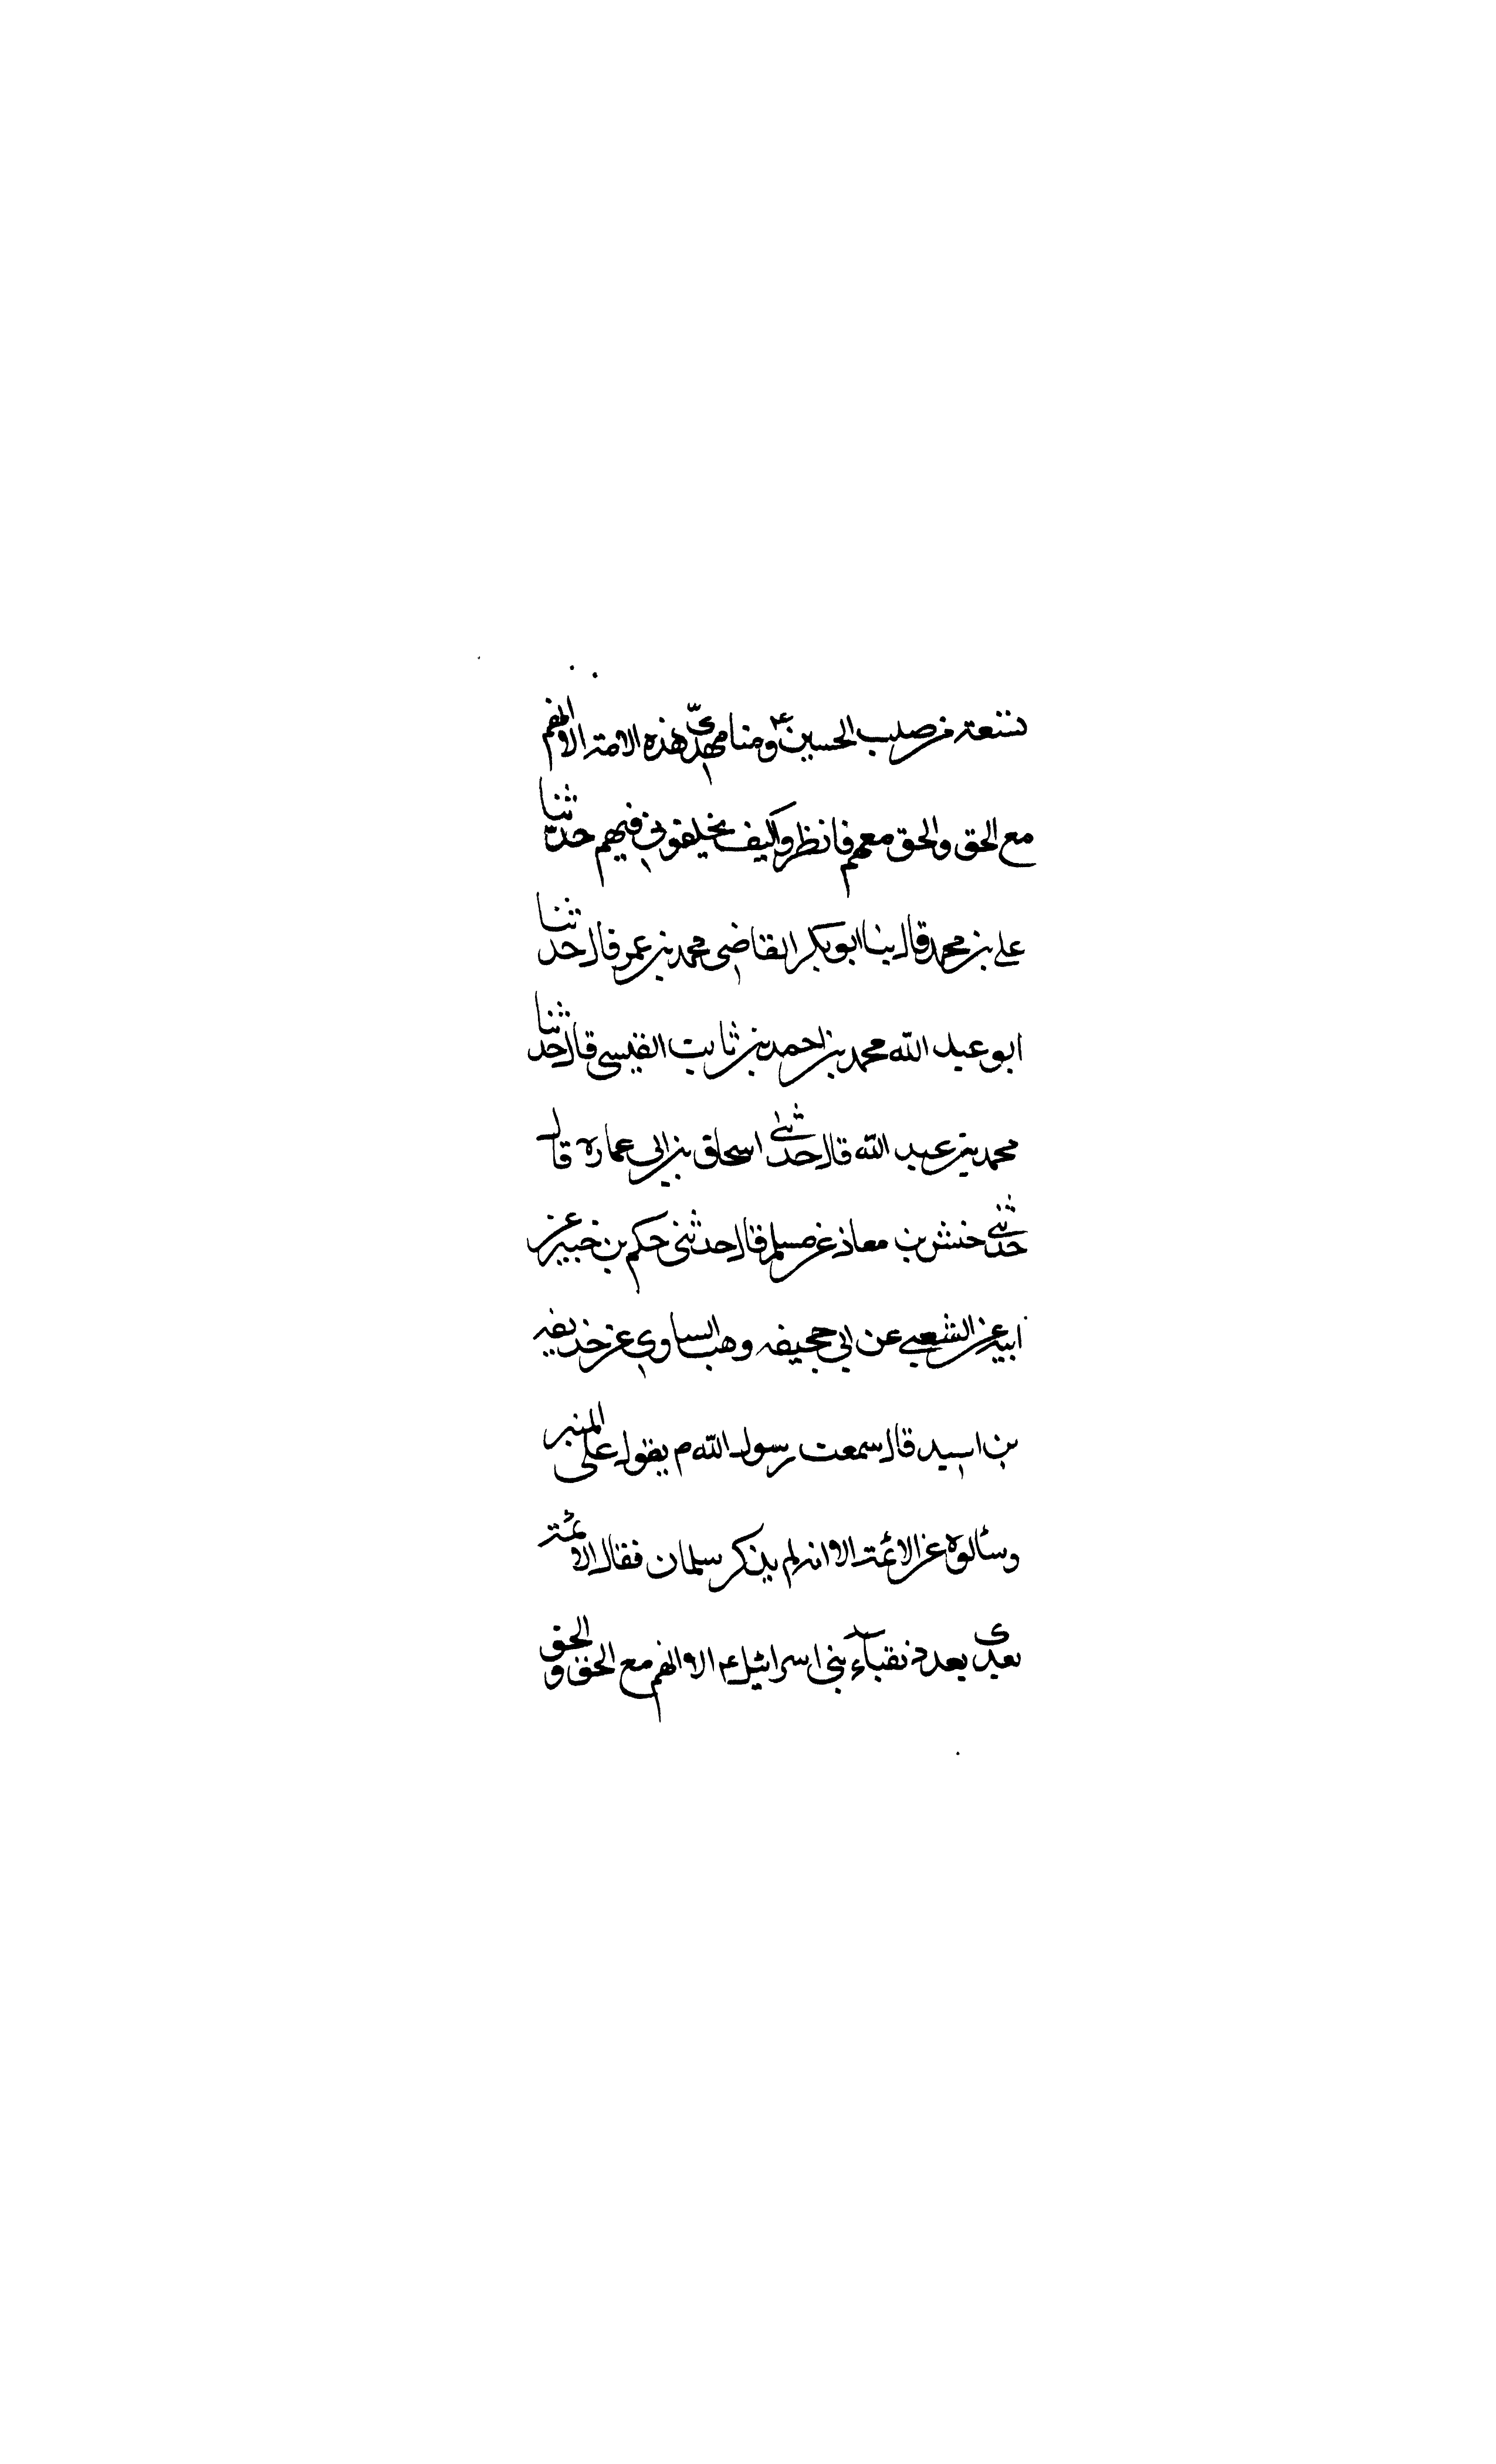 تسعة من صلب الحسين ع ومنا مهديّ هذه الامة الا انهم
مع الحق والحق معهم فانظروا كيف تخلفوني فيهم حدثنا
علي بن محمد قال بنا ابو بكر القاضي محمد بن عمر قال حدثنا
ابو عبد الله محمد بن احمد بن ثابت القيسي قال حدثنا
محمد بن عبد الله قال حدثني اسحاق بن ابي عماره قال
حدثني حنش بن معاذ عن مسلم قال حدثني حكم بن خبير عن
ابيه عن الشعبي عن ابي حجيفه وهب السناوي عن حذيفه
بن اسيد قال سمعت رسول الله م يقول على المنبر
وسألوه عن الائمة الا انه لم يذكر سلمان فقال الائمة
بعدى بعدد نقباء بني اسرائيل ع الا انهم مع الحق و الحق